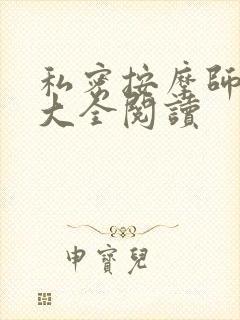 私密按摩師
大全閱讀
申寶兒